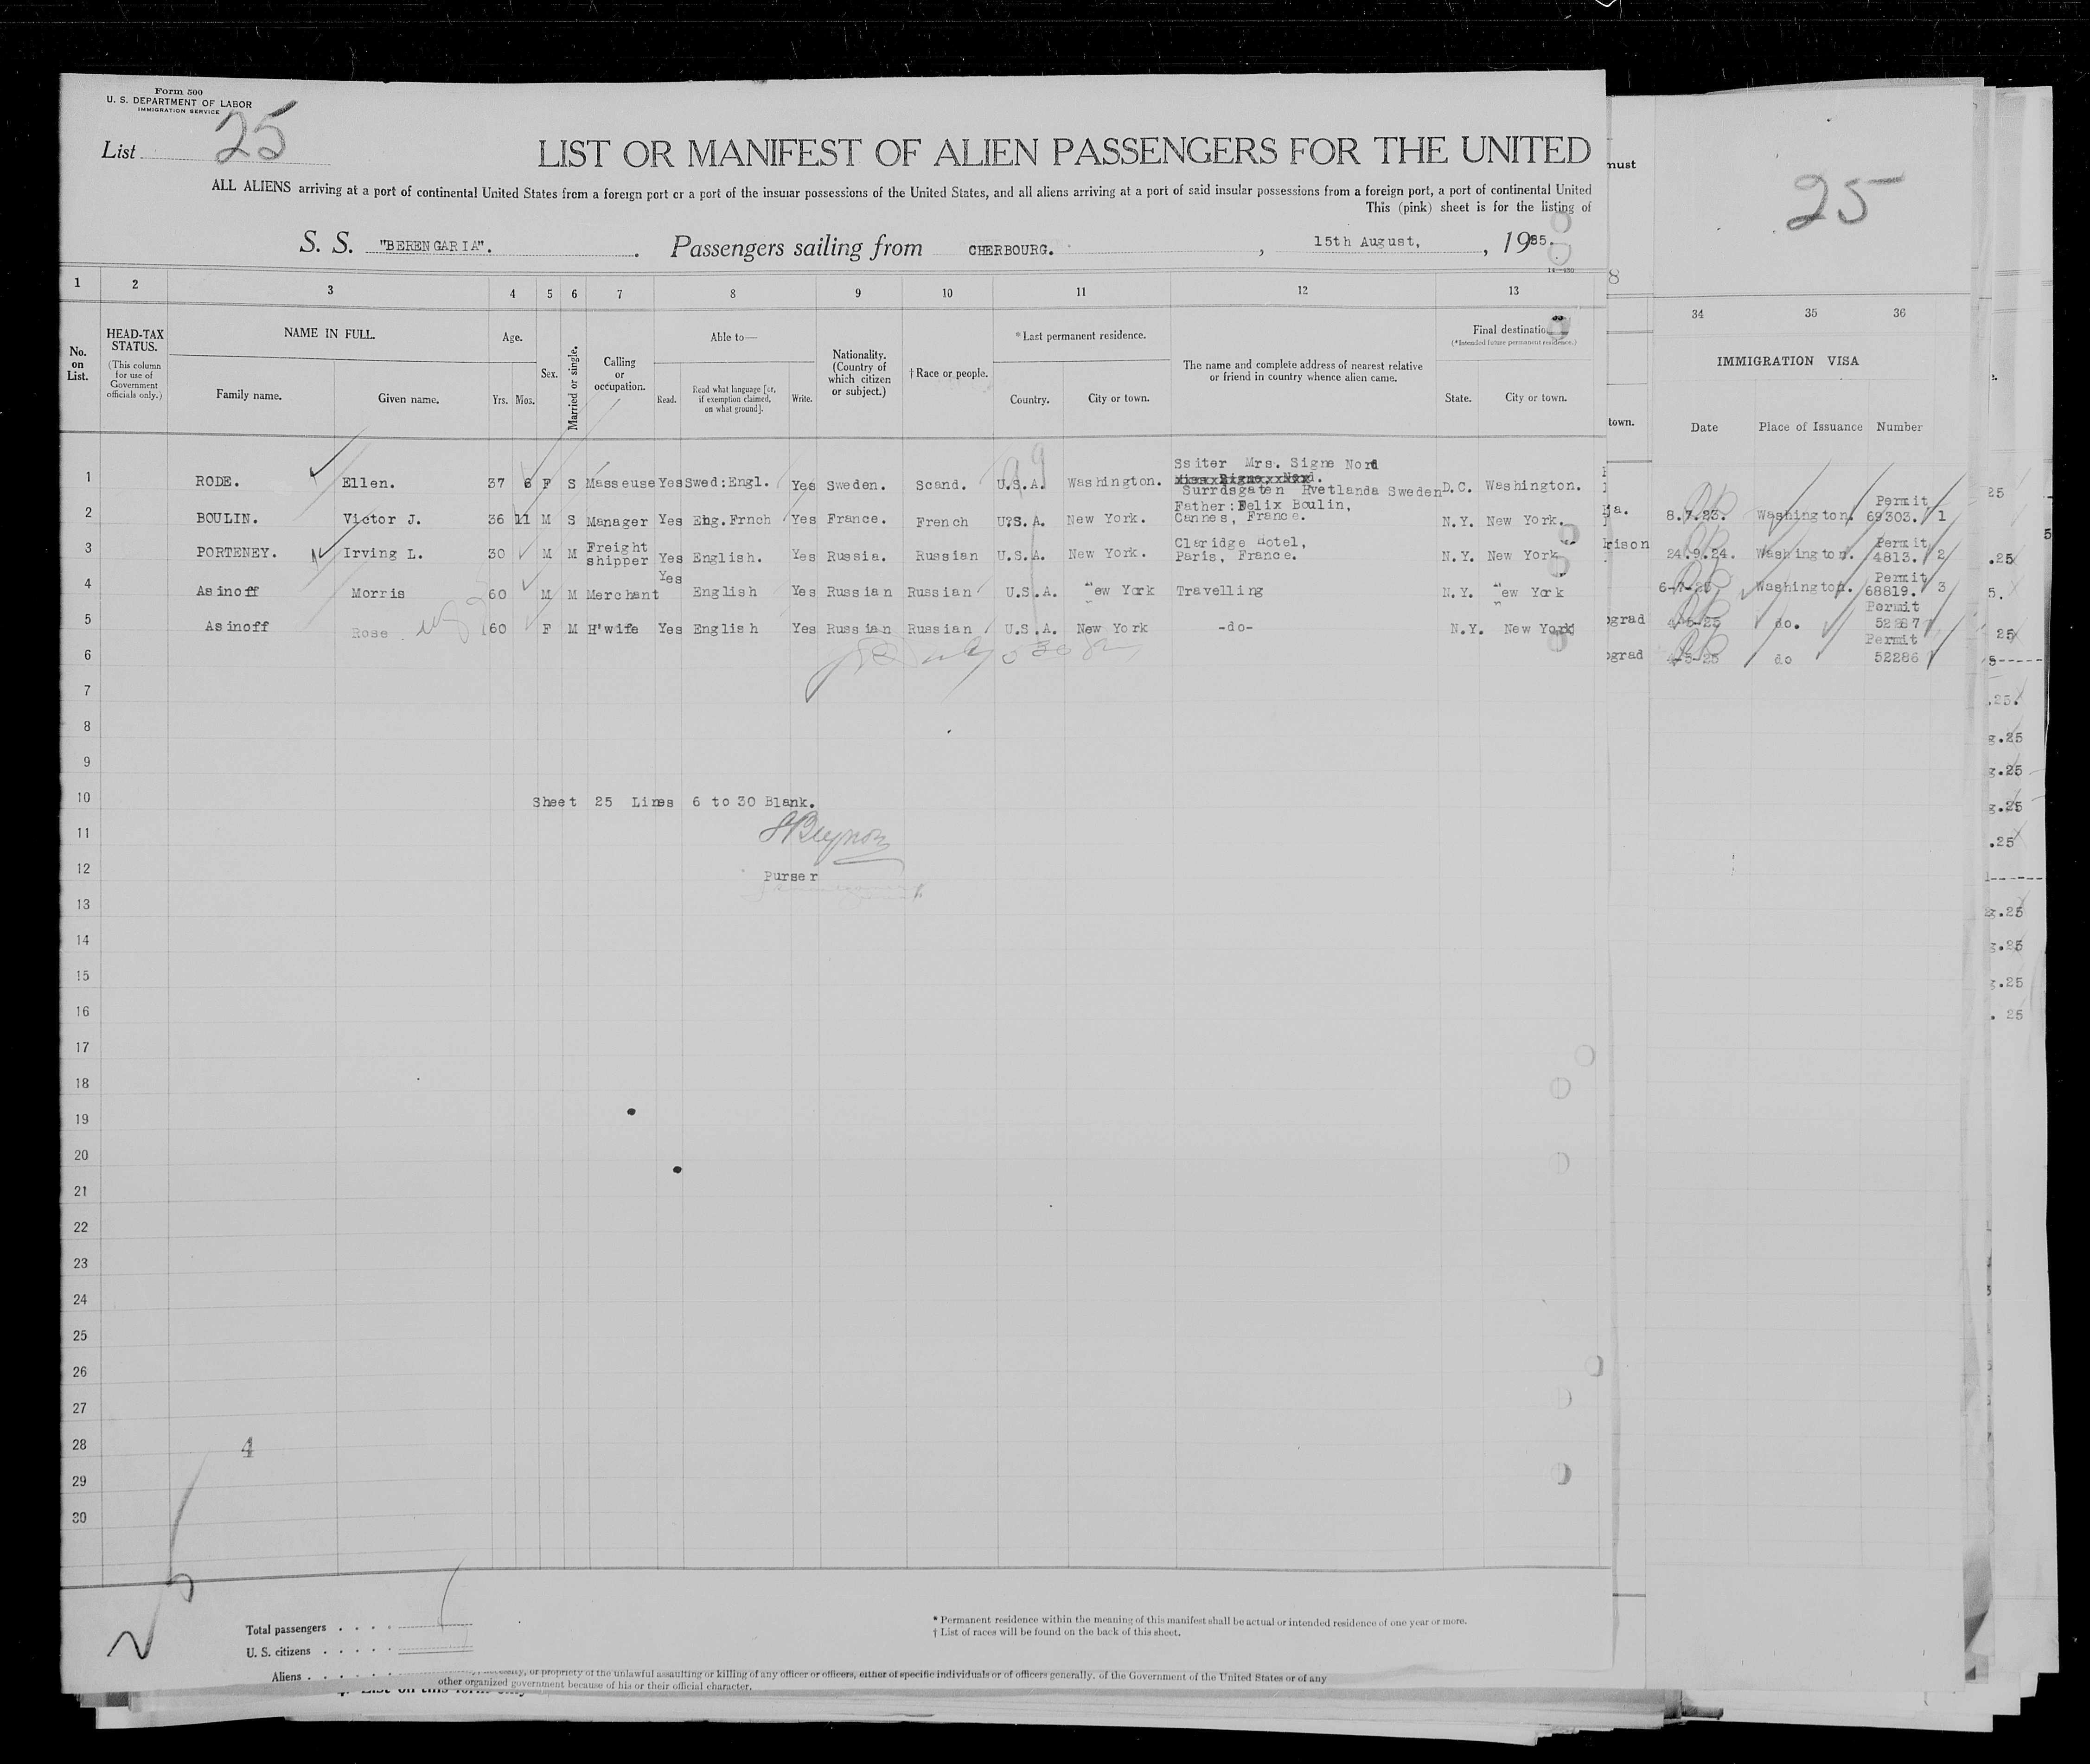 Form 500
U. S. DEPARTMENT OF LABOR
IMMIGRATION SERVICE
List 25
LIST OR MANIFEST OF ALIEN PASSENGERS FOR THE UNITED
ALL ALIENS arriving at a port of continental United States from a foreign port or a port of the insular possessions of the United States, and all aliens arriving at a port of said insular possessions from a foreign port, a port of continental United
This (pink) sheet is for the listing of
S. S. "BERENGARIA". Passengers sailing from CHERBOURG. , 15th August, , 19
1 2 3 4 5 6 7 8 9 10 11 12 13
No. on List.
HEAD-TAX STATUS.
(This column for use of Government officials only.)
NAME IN FULL.
Family name. Given name.
Age.
Yrs. Mos.
Sex.
Married or single.
Calling or occupation.
Able to—
Read. Read what language [or, if exemption claimed, on what ground]. Write.
Nationality. (Country of which citizen or subject.)
†Race or people.
*Last permanent residence.
Country. City or town.
The name and complete address of nearest relative or friend in country whence alien came.
Final destination
(*Intended future permanent residence.)
State. City or town.
Ssiter Mrs. Signe Nord
1 RODE. Ellen. 37 6 F S Masseuse Yes Swed:Engl. Yes Sweden. Scand. U.S.A. Washington. D.C. Washington.
Surrdsgaten Hvetlanda Sweden
Father:Felix Boulin,
2 BOULIN. Victor J. 36 11 M S Manager Yes Eng.Frnch Yes France. French U?S.A. New York. Cannes, France. N.Y. New York.
3 PORTENEY. Irving L. 30 M M Freight shipper Yes English. Yes Russia. Russian U.S.A. New York. Claridge Hotel, Paris, France. N.Y. New York
4 Asinoff Morris 60 M M Merchant Yes English Yes Russian Russian U.S.A. New York Travelling N.Y. New York
5 Asinoff Rose 60 F M H'wife Yes English Yes Russian Russian U.S.A. New York -do- N.Y. New York
6
7
8
9
10 Sheet 25 Lines 6 to 30 Blank.
11
12 Purser
13
14
15
16
17
18
19
20
21
22
23
24
25
26
27
28 4
29
30
Total passengers
U. S. citizens
Aliens
* Permanent residence within the meaning of this manifest shall be actual or intended residence of one year or more.
† List of races will be found on the back of this sheet.
or propriety of the unlawful assaulting or killing of any officer or officers, either of specific individuals or of officers generally, of the Government of the United States or of any
other organized government because of his or their official character.
must
25
8
34 35 36
IMMIGRATION VISA
town. Date Place of Issuance Number
a. 8.7.23. Washington. Permit 69303. 1
rison 24.9.24. Washington. Permit 4813. 2
6-7-25 Washington. Permit 68819. 3
ograd 4-5-25 do. Permit 52287
ograd 4-5-25 do Permit 52286